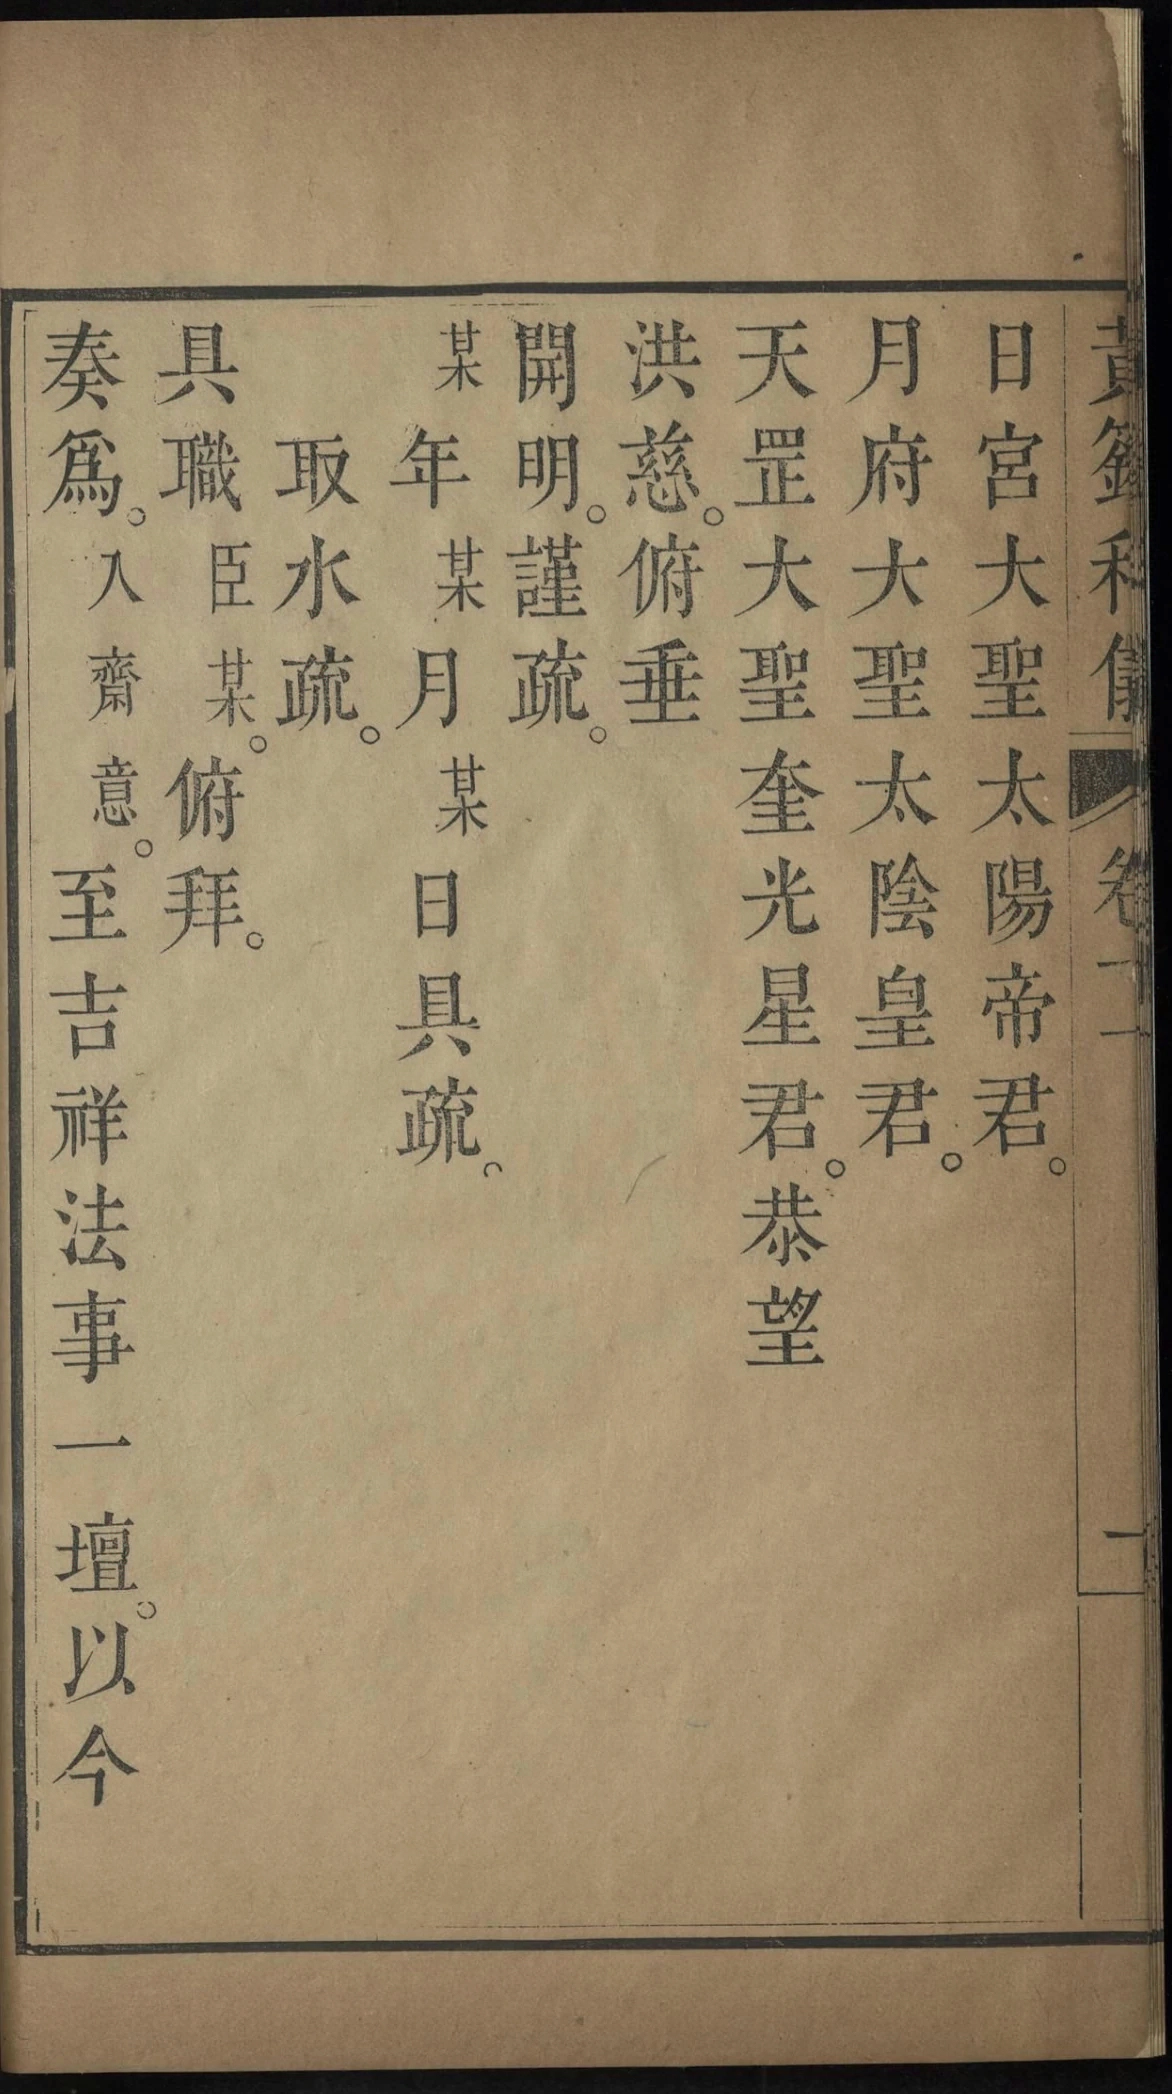 黃籙科儀 卷十二 一
日宮大聖太陽帝君。
月府大聖太陰皇君。
天罡大聖奎光星君。恭望
洪慈。俯垂
開明。謹疏。
某年某月某日具疏。
取水疏。
具職臣某。俯拜。
奏爲。入齋意。至吉祥法事一壇。以今